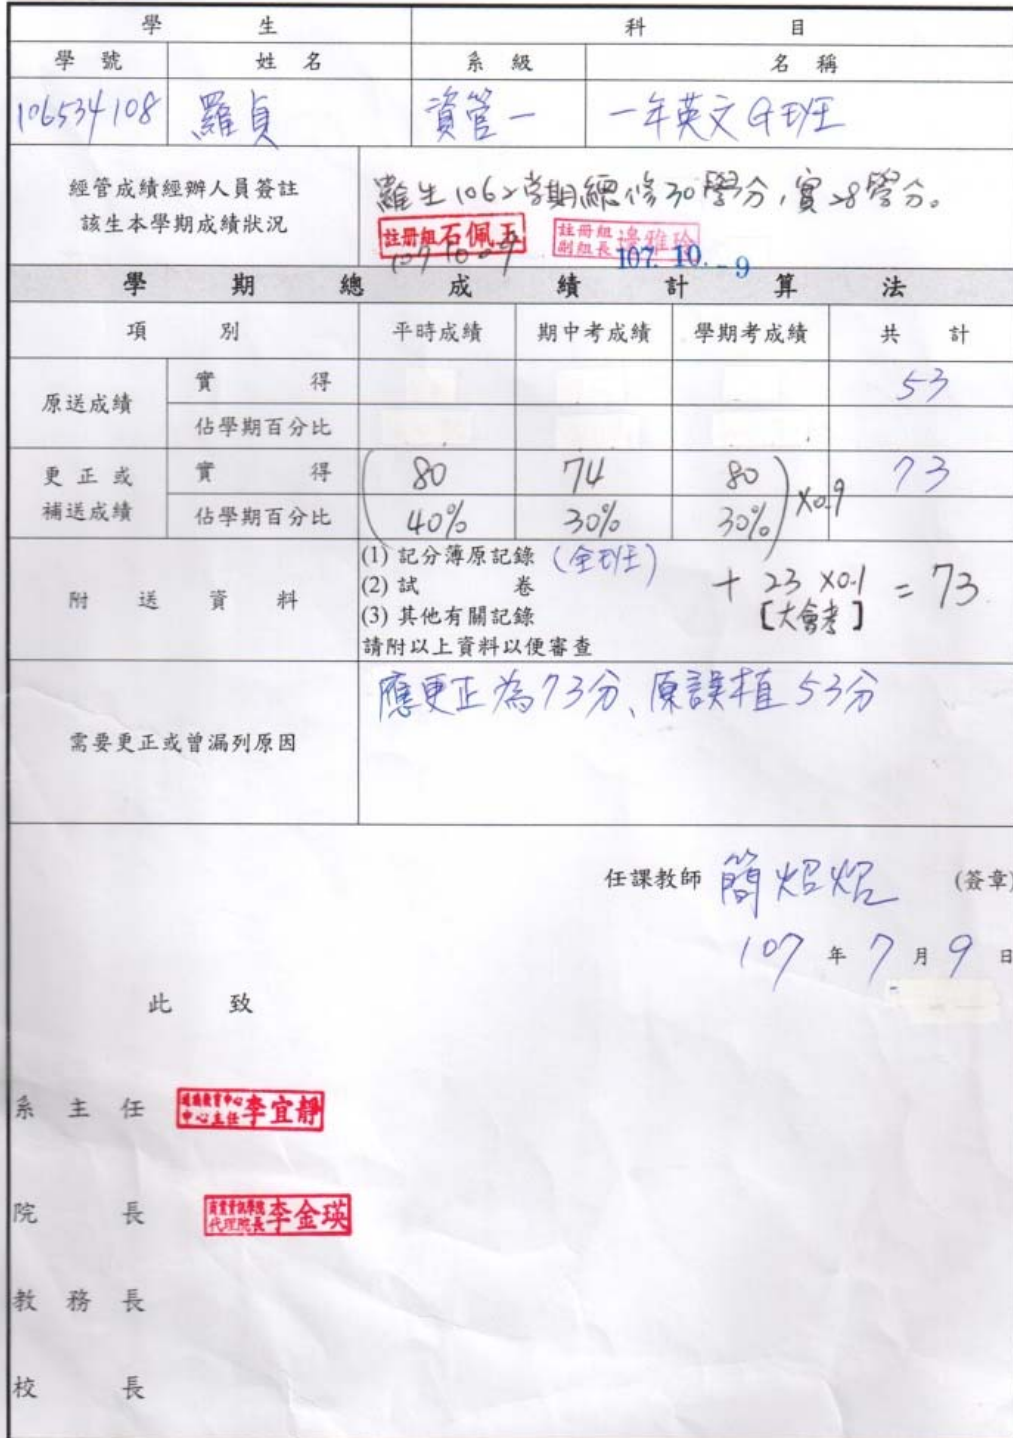 學生 科目
學號 姓名 系級 名稱
106534108 羅貞 資管一 一年英文G班
經管成績經辦人員簽註 羅生106 學期總修30學分,實 28學分。
該生本學期成績狀況
註冊組石佩玉 註冊組副組長邊雅玲
107 10. -9
學期總成績計算法
項別 平時成績 期中考成績 學期考成績 共計
原送成績 實得 53
佔學期百分比
更正或補送成績 實得 (80 74 80) ×0.9 73
佔學期百分比 40% 30% 30%
附送資料 (1) 記分簿原記錄 (全班)
(2) 試卷 + 23 ×0.1 = 73
(3) 其他有關記錄 [大會考]
請附以上資料以便審查
需要更正或曾漏列原因 應更正為73分、原誤植53分
任課教師 簡 (簽章)
107 年 7 月 9 日
此致
系主任 中心主任 李宜靜
院長 代理院長 李金瑛
教務長
校長